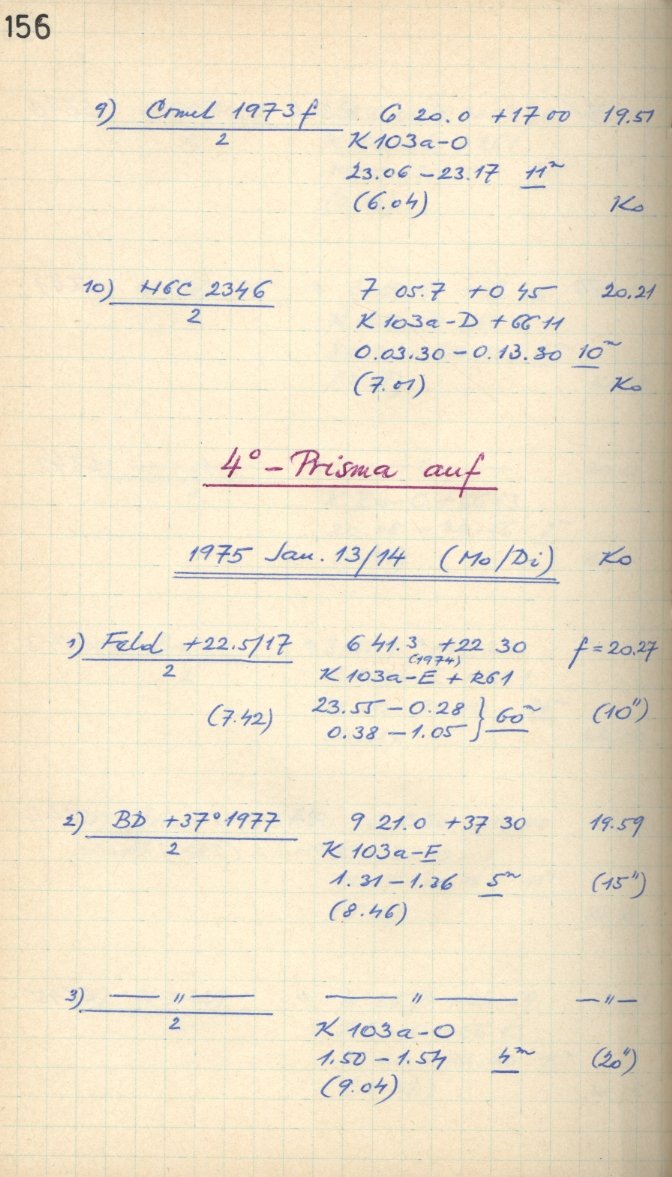 156
9) Comet 1973 f 6 20.0 +17 00 19.51
2 K 103a-O
23.06 – 23.17 11ᵐ
(6.04) Ko
10) NGC 2346 7 05.7 +0 45 20.21
2 K 103a-D + GG 11
0.03.30 – 0.13.30 10ᵐ
(7.01) Ko
4° – Prisma auf
1975 Jan. 13/14 (Mo/Di) Ko
1) Feld +22.5/17 6 41.3 +22 30 f = 20.27
(1974)
2 K 103a-E + RG1
(7.42) 23.55 – 0.28 } 60ᵐ (10")
0.38 – 1.05
2) BD +37° 1977 9 21.0 +37 30 19.59
2 K 103a-E
1.31 – 1.36 5ᵐ (15")
(8.46)
3) — " — — " — — " —
2 K 103a-O
1.50 – 1.54 4ᵐ (20")
(9.04)